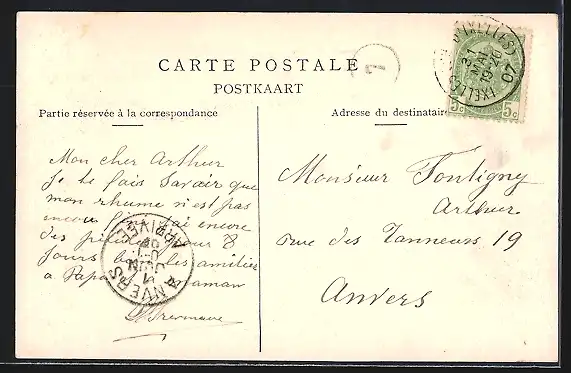 CARTE POSTALE
POSTKAART
Partie réservée à la correspondance
Adresse du destinataire
IXELLES (D'IXELLES)
31 MAI 19-20 07
5c 5c
L
Mon cher Arthur
Je te fais savoir que
mon rhume n'est pas
encore j'ai encore
des pour 8
jours les amitiés
à Papa maman
Monsieur Fontigny
Arthur
rue des Tanneurs 19
Anvers
ANVERS
1 JUIN
ARRIVÉE